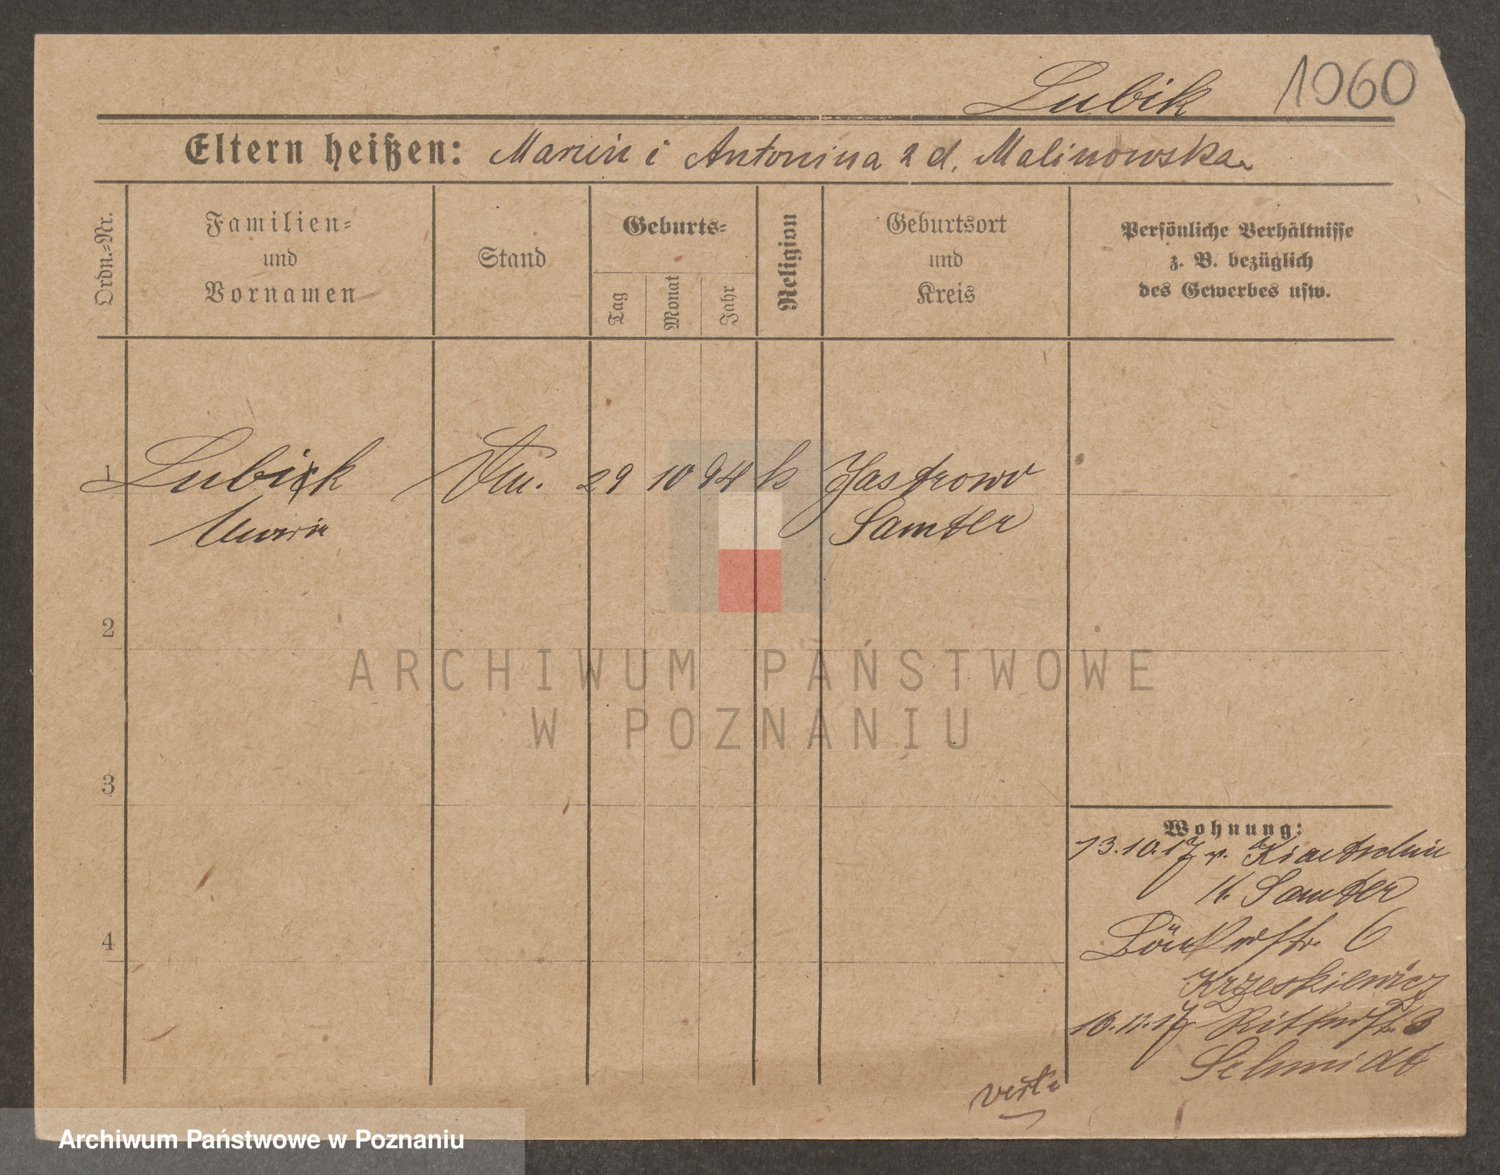 Lubik 1060
Eltern heißen: Marcin i Antonina z d. Malinowska
Ordn.-Nr.
Familien- und Vornamen
Stand
Geburts-
Tag
Monat
Jahr
Religion
Geburtsort und Kreis
Persönliche Verhältnisse z. B. bezüglich des Gewerbes usw.
1 Lubik 29 10 94 k Jastrowo
Samter
2
3
4
Wohnung:
13.10.17 v.
K. Samter
6
Krzeskiewicz
16.11.17 Ritterstr. 3
Schmidt
verte
ARCHIWUM PAŃSTWOWE
W POZNANIU
Archiwum Państwowe w Poznaniu